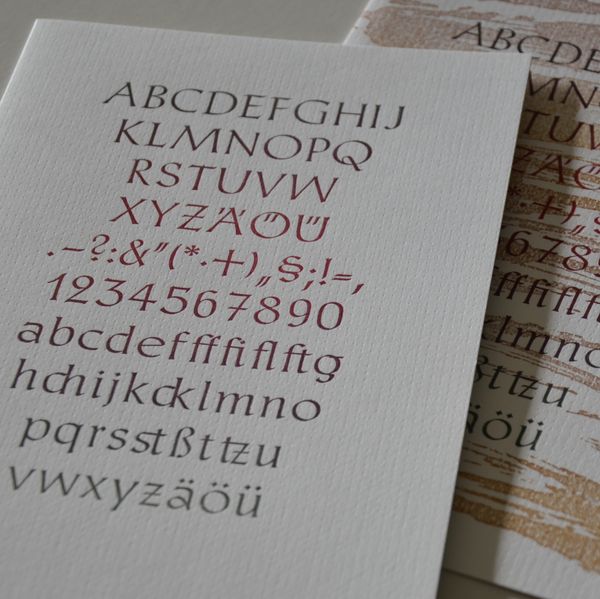 ABCDEFGHIJ
KLMNOPQ
RSTUVW
XYZÄÖÜ
.–?:&"(*·+)„§;!=,
1234567890
abcdeffffiflftg
hchijkcklmno
pqrsstßttzu
vwxyzäöü
ABCDE